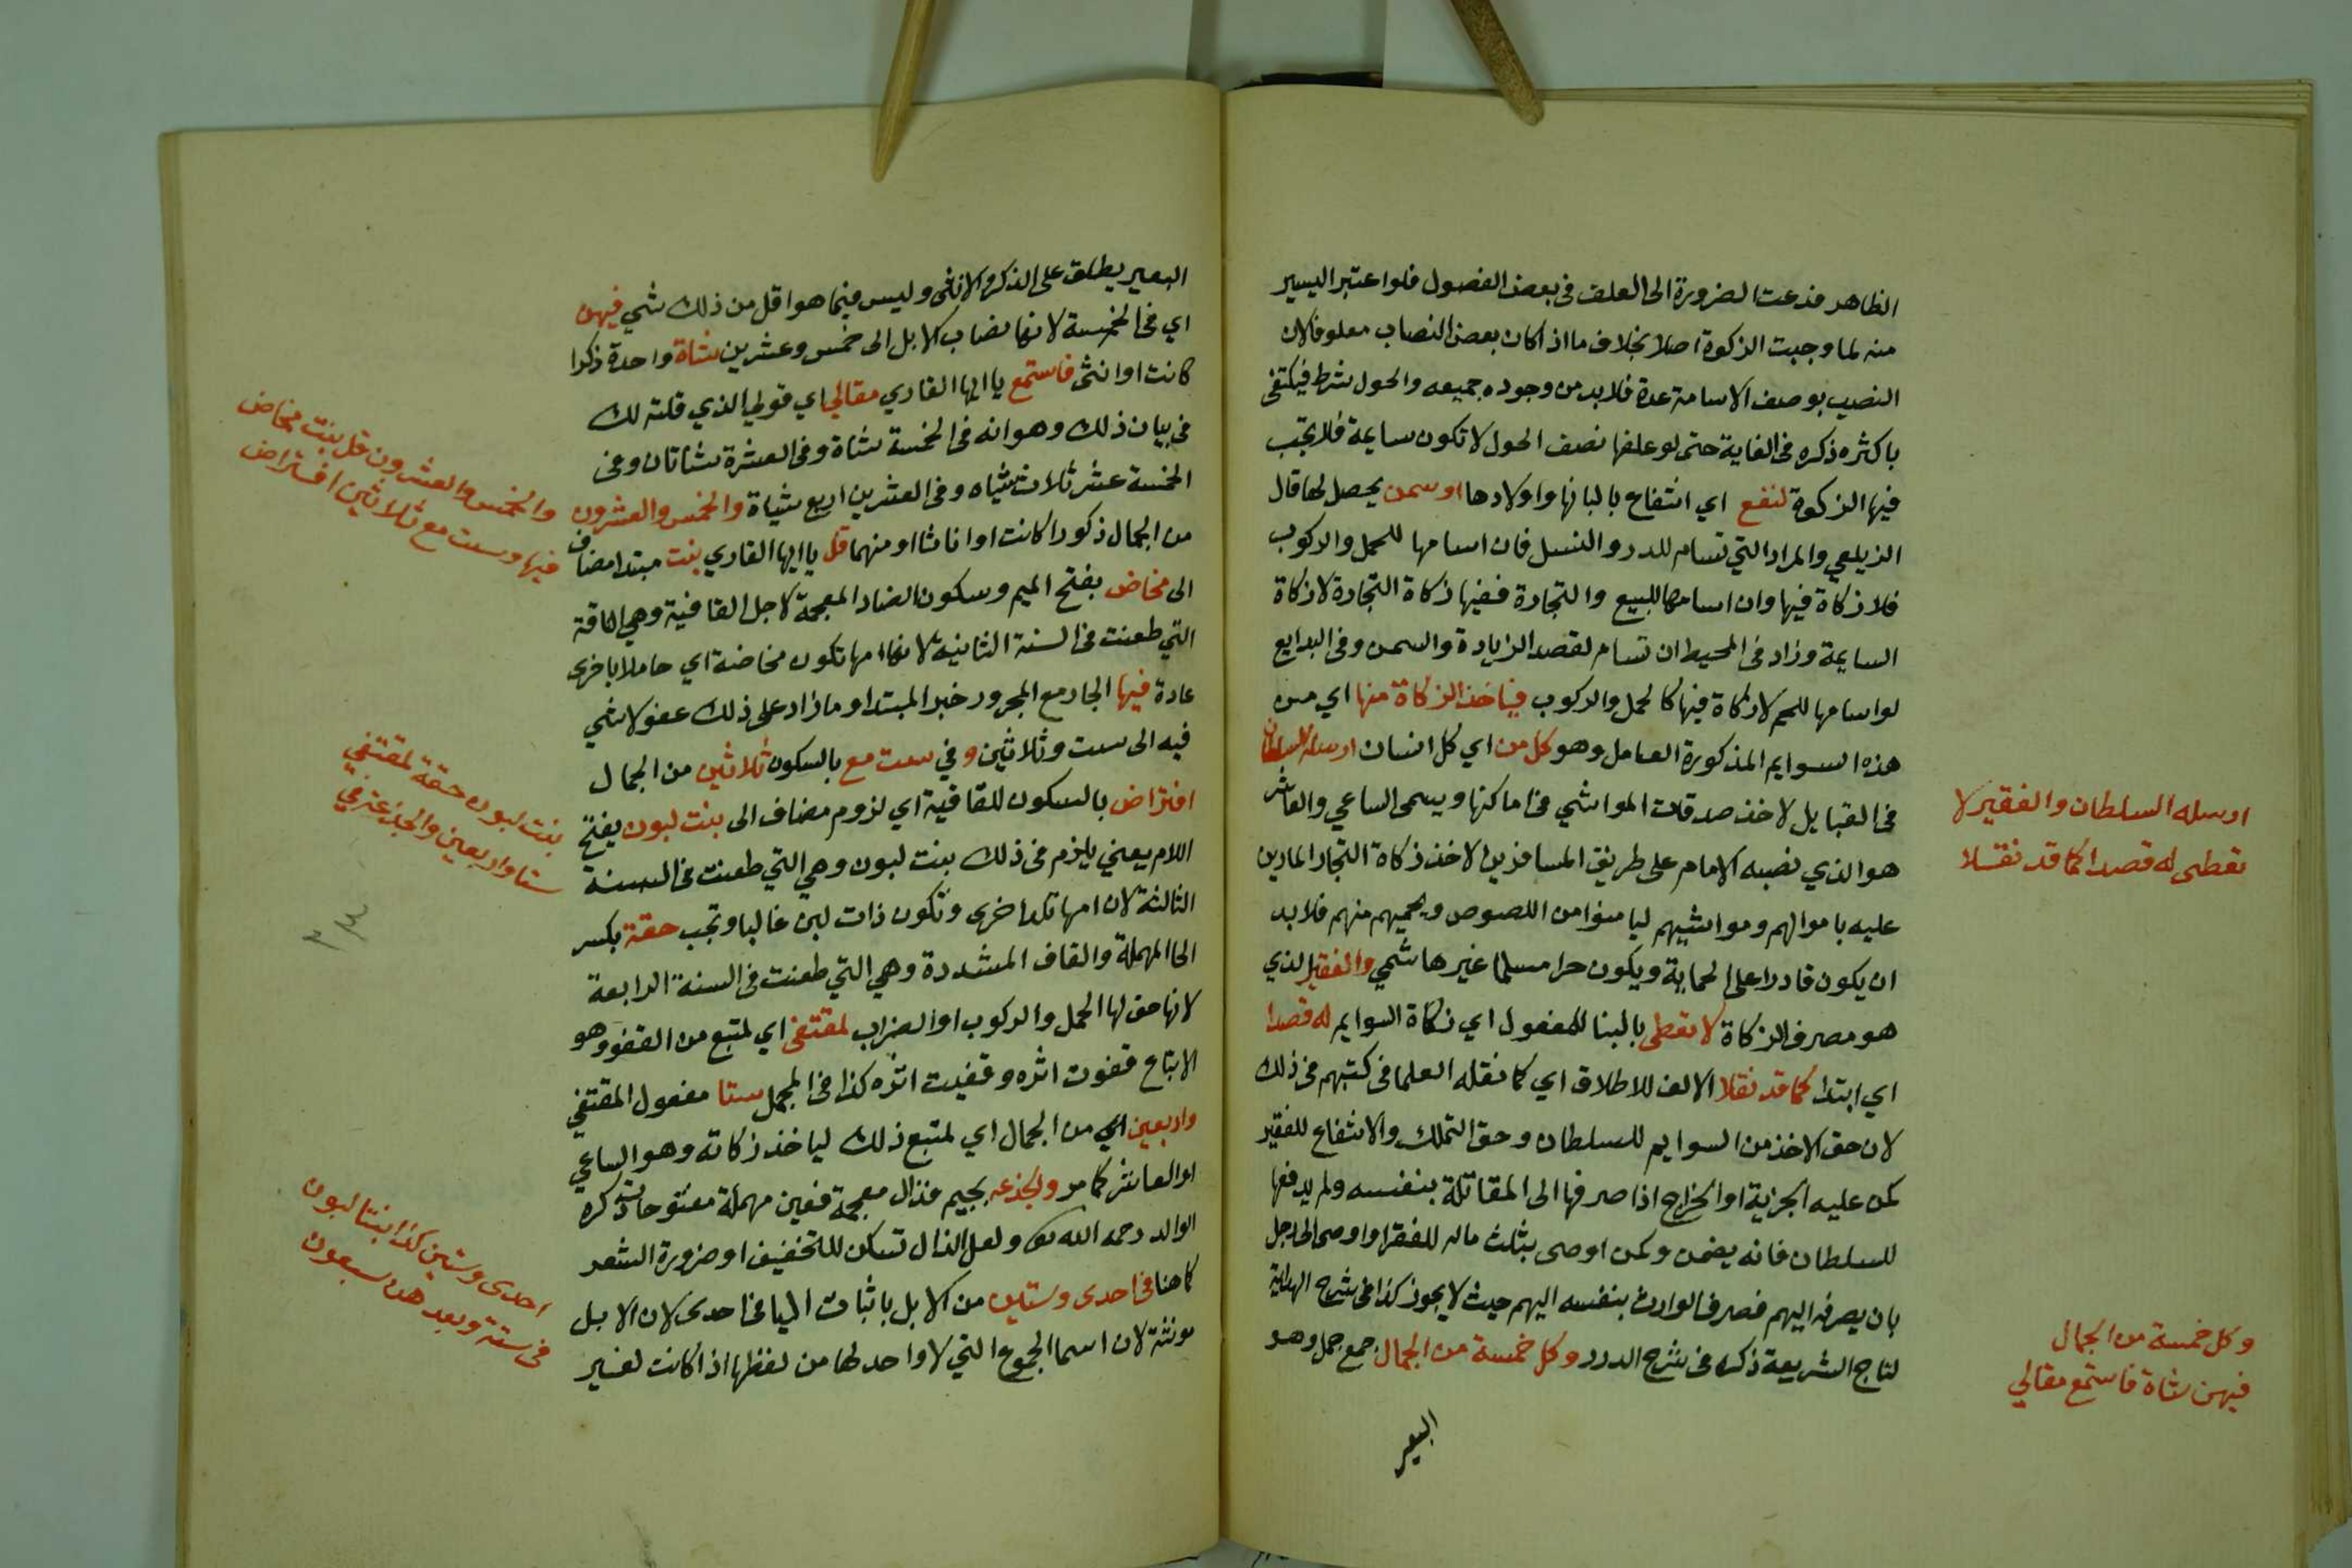 الظاهر فدعت الضرورة الى العلف فى بعض الفصول فلو اعتبر اليسير
منه لما وجبت الزكوة اصلا بخلاف ما اذا كان بعض النصاب معلوفا لان
النصيب بوصف الاسامة عدة فلا بد من وجوده جميعه والحول شرط فيكتفى
باكثره ذكره فى الغاية حتى لو علفها نصف الحول لا تكون سايمة فلا تجب
فيها الزكوة لنفع اي انتفاع بالبانها واولادها او سمن يحصل لها قال
الزيلعي والمراد التي تسام للدر والنسل فان اسامها للحمل والركوب
فلا زكاة فيها وان اسامها للبيع والتجارة ففيها زكاة التجارة لا زكاة
السايمة وزاد فى المحيط ان تسام لقصد الزيادة والسمن وفى البدايع
لو اسامها للحم لا زكاة فيها كالحمل والركوب فياخذ الزكاة منها اي من
هذه السوايم المذكورة العامل وهو كل من اي كل انسان ارسله السلطان
فى القبايل لاخذ صدقات المواشي فى اماكنها ويسمى الساعي والعاشر
هو الذي نصبه الامام على طريق المسافرين لاخذ زكاة التجار المارين
عليه باموالهم ومواشيهم ليامنوا من اللصوص ويحميهم منهم فلا بد
ان يكون قادرا على الحماية ويكون حرا مسلما غير هاشمي والفقير الذي
هو مصرف الزكاة لا يعطى بالبنا للمفعول اي زكاة السوايم له قصدا
اي ابتدا كما قد نقلا الالف للاطلاق اي كما نقله العلما فى كتبهم فى ذلك
لان حق الاخذ من السوايم للسلطان وحق التملك والانتفاع للفقير
كمن عليه الجزية او الخراج اذا صرفها الى المقاتلة بنفسه ولم يدفعها
للسلطان فانه يضمن وكمن اوصى بثلث ماله للفقرا واوصى الى رجل
بان يصرفه اليهم فصرف الوارث بنفسه اليهم حيث لا يجوز كذا فى شرح الهداية
لتاج الشريعة ذكره فى شرح الدرر وكل خمسة من الجمال جمع جمل وهو
البعير
ارسله السلطان والفقير لا
يعطى له قصدا كما قد نقلا
وكل خمسة من الجمال
فيهن شاة فاستمع مقالي
البعير يطلق على الذكر والانثى وليس فيما هو اقل من ذلك شي فيهن
اي فى الخمسة لانها نصاب الابل الى خمس وعشرين شاة واحدة ذكرا
كانت او انثى فاستمع يا ايها القاري مقالي اي قولي الذي قلته لك
فى بيان ذلك وهو انه فى الخمسة شاة وفى العشرة شاتان وفى
الخمسة عشر ثلاث شياه وفى العشرين اربع شياة والخمس والعشرون
من الجمال ذكورا كانت او اناثا او منهما قل يا ايها القاري بنت مبتدا مضاف
الى مخاض بفتح الميم وسكون الضاد المعجمة لاجل القافية وهي الناقة
التي طعنت فى السنة الثانية لانها امها تكون مخاضة اي حاملا باخرى
عادة فيها الجار مع المجرور خبر المبتدا وما زاد على ذلك عفو لا شي
فيه الى ست وثلاثين وفي ست مع بالسكون ثلاثين من الجمال
افتراض بالسكون للقافية اي لزوم مضاف الى بنت لبون بفتح
اللام يعني يلزم فى ذلك بنت لبون وهي التي طعنت فى السنة
الثالثة لان امها تلد اخرى وتكون ذات لبن غالبا وتجب حقة بكسر
الحا المهملة والقاف المشددة وهي التي طعنت فى السنة الرابعة
لانها حق لها الحمل والركوب او الضراب لمقتفى اي لمتبع من القفو وهو
الاتباع قفوت اثره وقفيت اثره كذا فى المجمل ستا مفعول المقتفي
واربعين اي من الجمال اي لمتبع ذلك لياخذ زكاته وهو الساعي
او العاشر كما مر والجذعه بجيم فذال معجمة فعين مهملة مفتوحات ذكره
الوالد رحمه الله تعا ولعل الذال تسكن للتخفيف او ضرورة الشعر
كما هنا فى احدى وستين من الابل باثبات اليا فى احدى لان الابل
مونثة لان اسما الجموع التي لا واحد لها من لفظها اذا كانت لغير
والخمس والعشرون قل بنت مخاض
فيها وست مع ثلاثين افتراض
بنت لبون حقة لمقتفي
ستا واربعين والجذعة في
احدى وستين كذا بنتا لبون
فى ستة وبعد هن سبعون